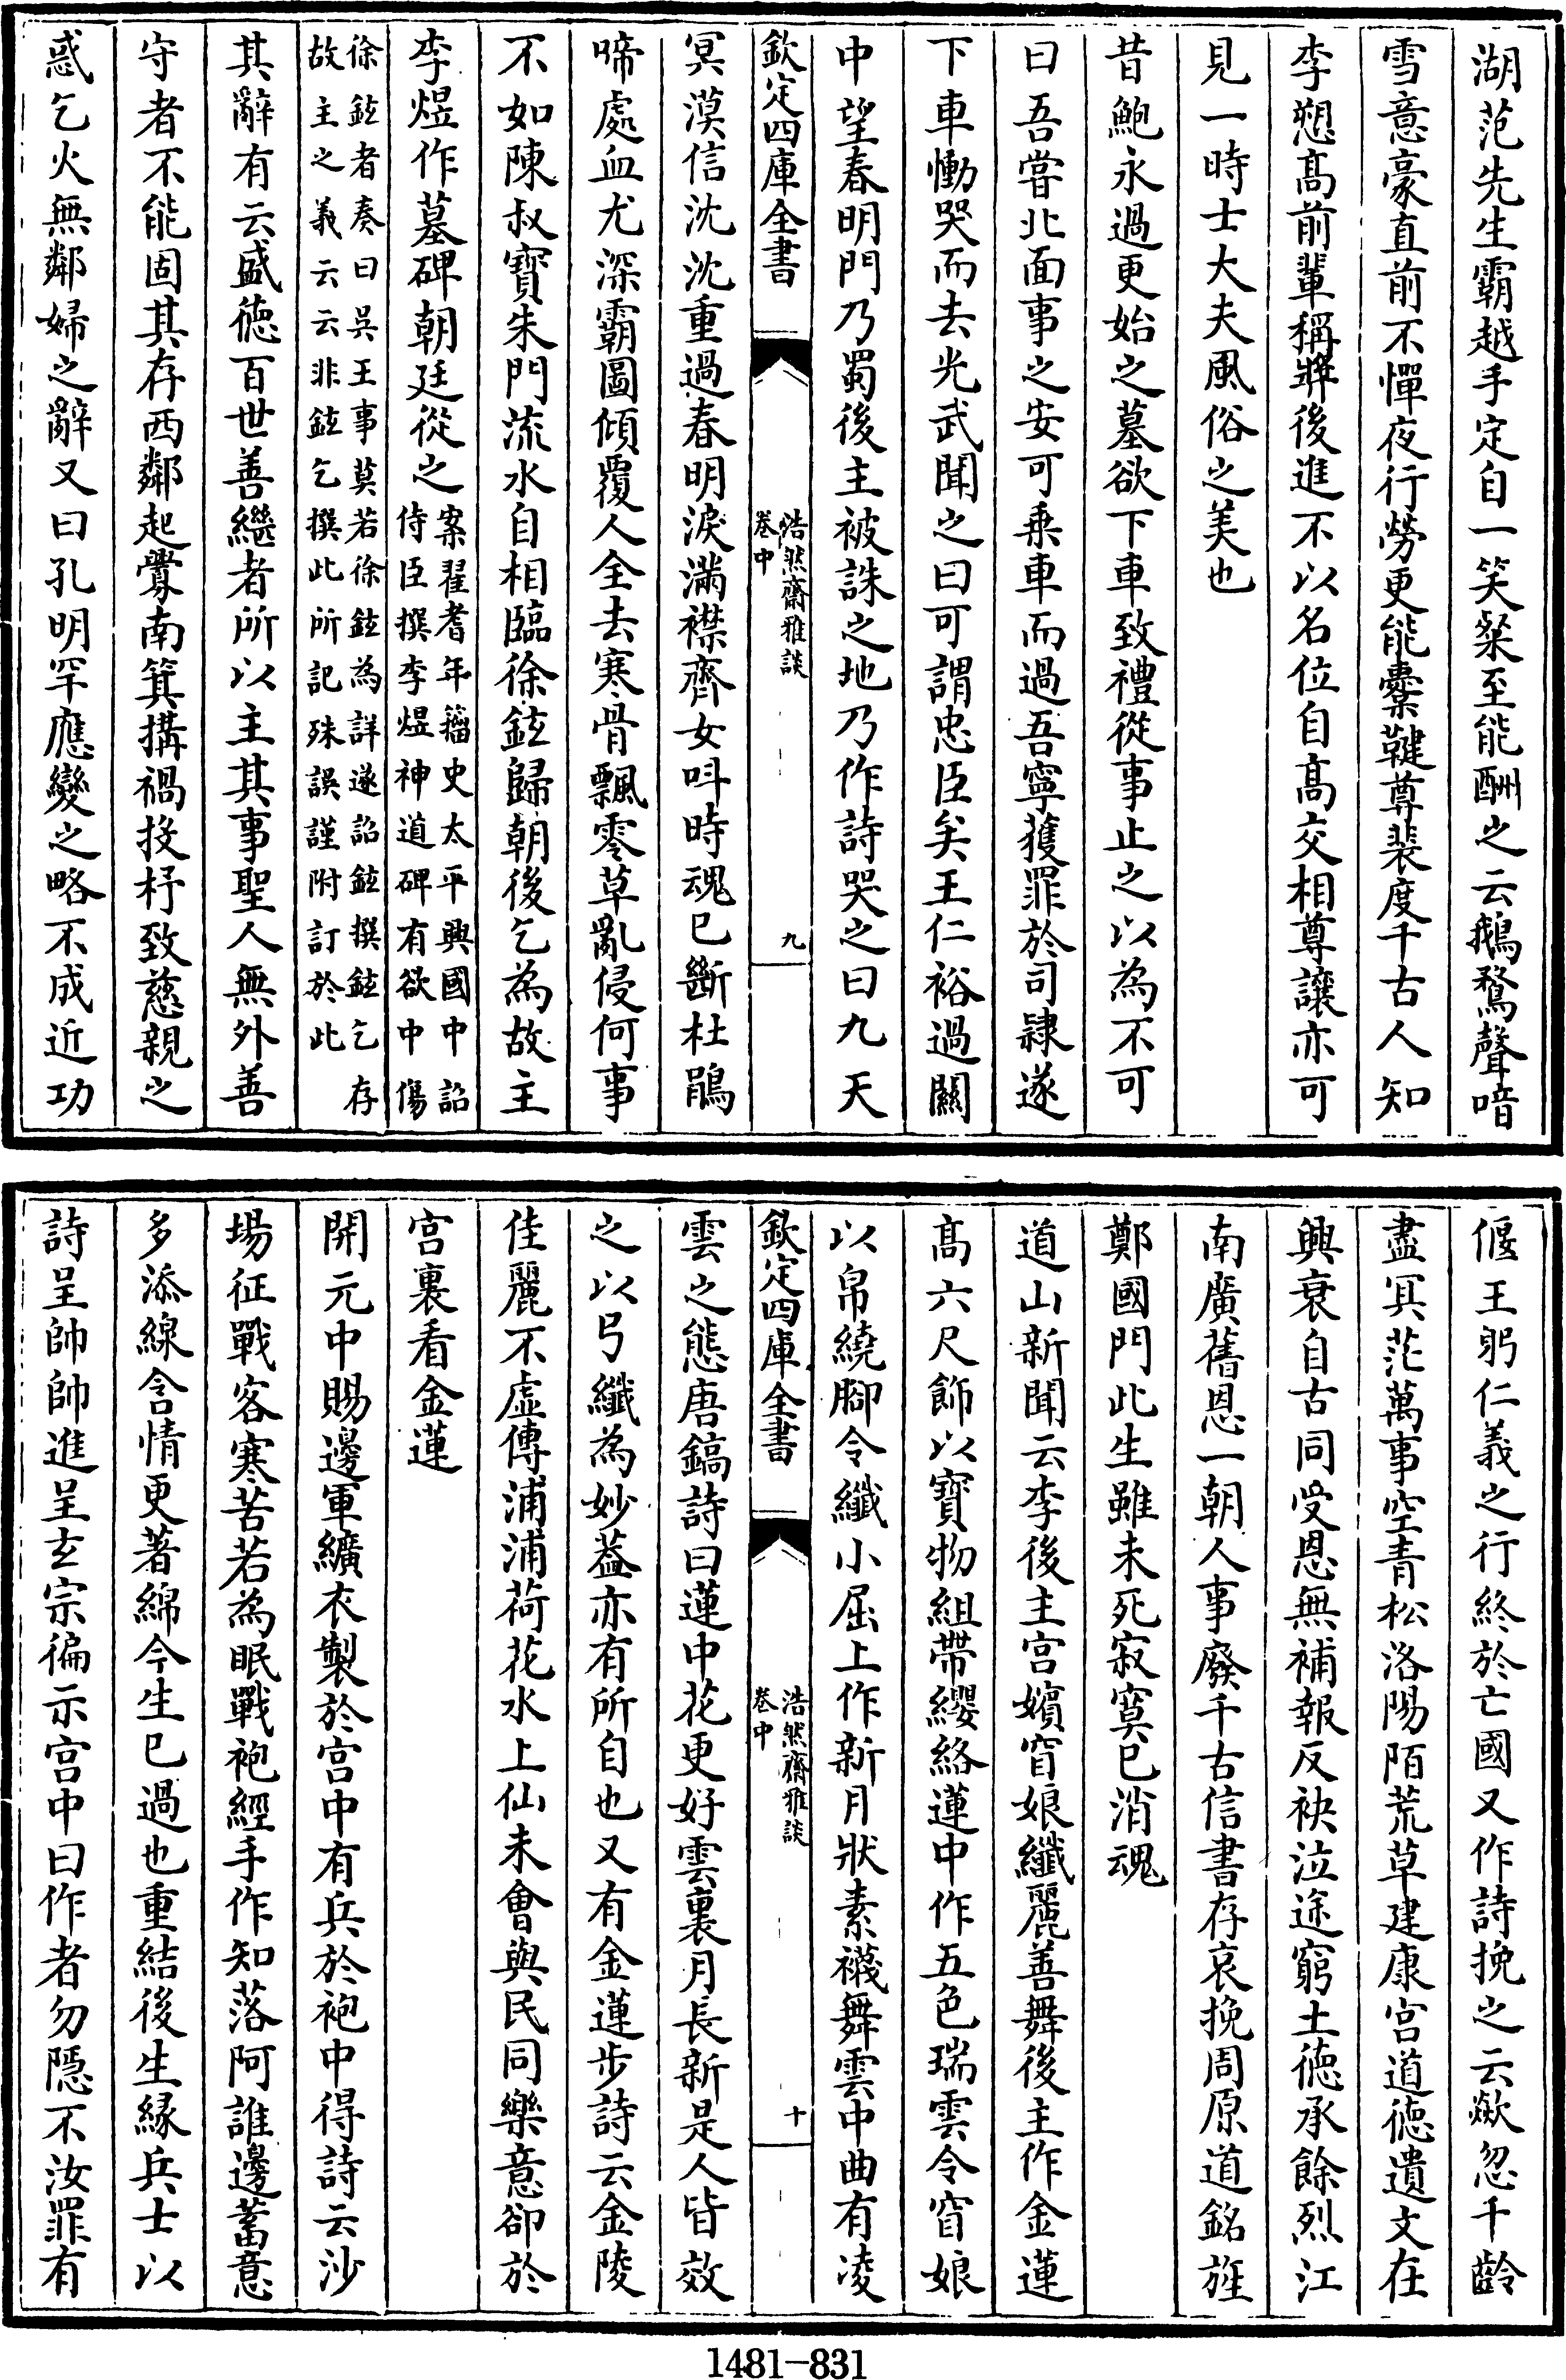 湖范先生霸越手定自一笑粲至能酬之云鵝鶩聲喑
雪意豪直前不憚夜行勞更能櫜鞬尊裴度千古人知
李愬髙前輩稱奬後進不以名位自髙交相尊讓亦可
見一時士大夫風俗之美也
昔鮑永過更始之墓欲下車致禮從事止之以為不可
曰吾嘗北面事之安可乗車而過吾寧獲罪於司隷遂
下車慟哭而去光武聞之曰可謂忠臣矣王仁裕過闗
中望春明門乃蜀後主被誅之地乃作詩哭之曰九天
欽定四庫全書
浩然齋雅談
卷中
九
冥漠信沈沈重過春明淚滿襟齊女呌時魂已斷杜鵑
啼處血尤深霸圖傾覆人全去寒骨飄零草亂侵何事
不如陳叔寳朱門流水自相臨徐鉉歸朝後乞為故主
李煜作墓碑朝廷從之
案翟耆年籀史太平興國中詔
侍臣撰李煜神道碑有欲中傷
徐鉉者奏曰吳王事莫若徐鉉為詳遂詔鉉撰鉉乞存
故主之義云云非鉉乞撰此所記殊誤謹附訂於此
其辭有云盛徳百世善繼者所以主其事聖人無外善
守者不能固其存西鄰起釁南箕搆禍投杼致慈親之
惑乞火無鄰婦之辭又曰孔明罕應變之略不成近功
偃王躬仁義之行終於亡國又作詩挽之云歘忽千齡
盡冥茫萬事空青松洛陽陌荒草建康宫道徳遺文在
興衰自古同受恩無補報反袂泣途窮土徳承餘烈江
南廣舊恩一朝人事廢千古信書存哀挽周原道銘旌
鄭國門此生雖未死寂寞已消魂
道山新聞云李後主宫嬪窅娘纖麗善舞後主作金蓮
髙六尺飾以寳物組帶纓絡蓮中作五色瑞雲令窅娘
以帛繞腳令纖小屈上作新月狀素襪舞雲中曲有凌
欽定四庫全書
浩然齋雅談
卷中
十
雲之態唐鎬詩曰蓮中花更好雲裏月長新是人皆效
之以弓纖為妙葢亦有所自也又有金蓮步詩云金陵
佳麗不虛傳浦浦荷花水上仙未會與民同樂意卻於
宫裏看金蓮
開元中賜邊軍纊衣製於宫中有兵於袍中得詩云沙
場征戰客寒苦若為眠戰袍經手作知落阿誰邊蓄意
多添線含情更著綿今生已過也重結後生緣兵士以
詩呈帥帥進呈玄宗徧示宫中曰作者勿隠不汝罪有
1481-831